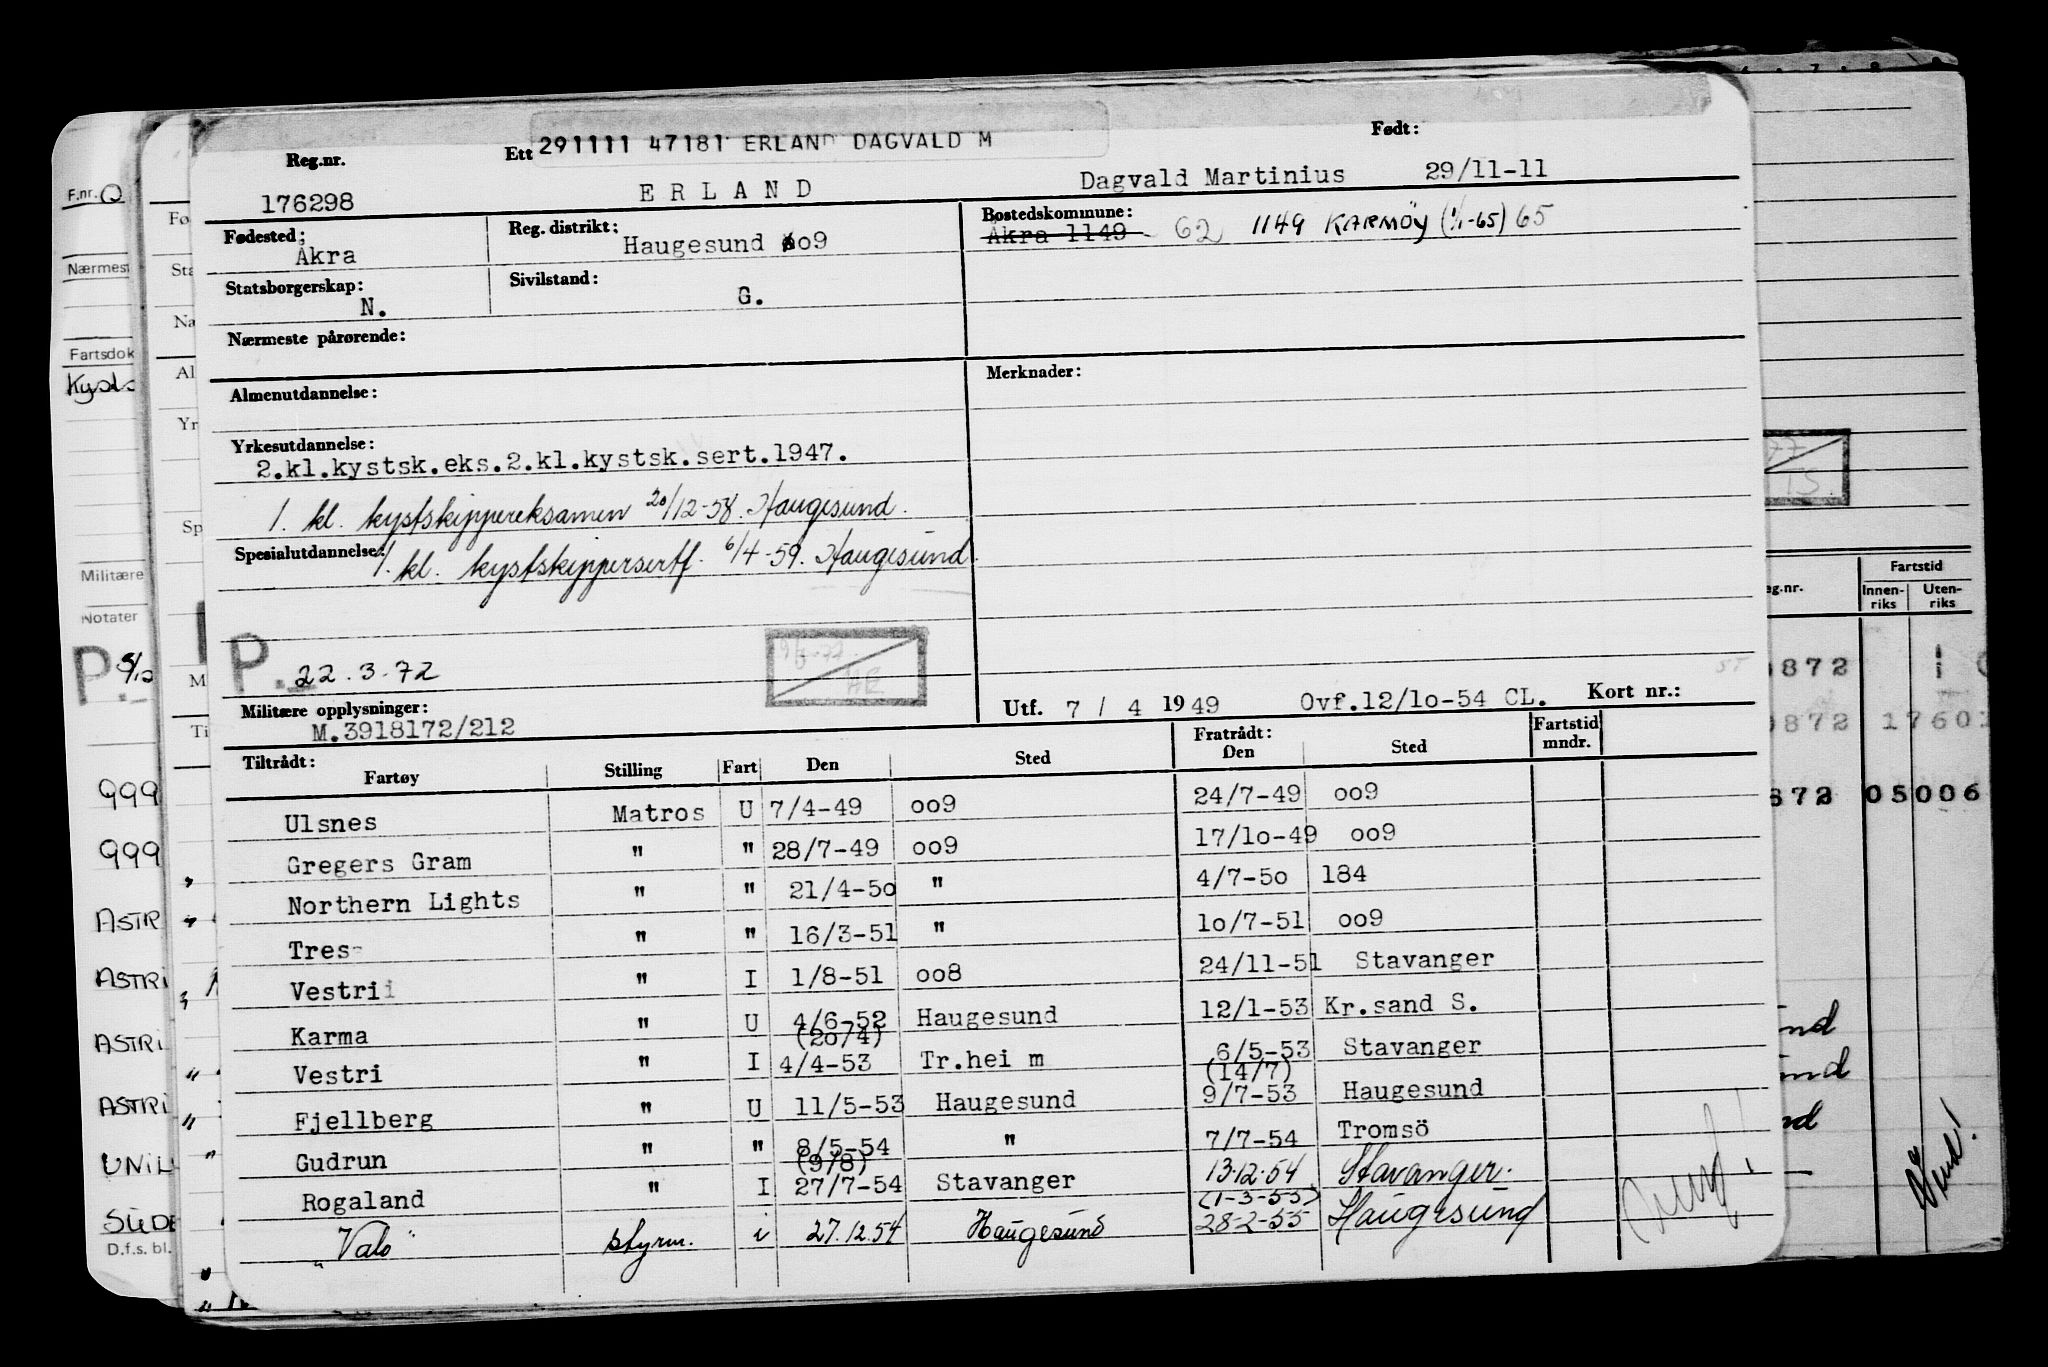 Reg.nr. Ett 291111 47181 ERLAND DAGVALD M Født:
176298 ERLAND Dagvald Martinius 29/11-11
Fødested: Åkra Reg. distrikt: Haugesund oo9 Bostedskommune: Åkra 1149 62 1149 KARMØY (1/1-65) 65
Statsborgerskap: N. Sivilstand: G.
Nærmeste pårørende:
Almenutdannelse: Merknader:
Yrkesutdannelse:
2.kl.kystsk.eks.2.kl.kystsk.sert.1947.
1. kl. kystskippereksamen 20/12-58. Haugesund.
Spesialutdannelse: 1. kl. kystskippersertf. 6/4-59. Haugesund.
P. 22.3.72
Militære opplysninger: Utf. 7 / 4 1949 Ovf.12/1o-54 CL. Kort nr.:
M.3918172/212
Tiltrådt: Fratrådt: Fartstid
Fartøy Stilling Fart Den Sted Den Sted mndr.
Ulsnes Matros U 7/4-49 oo9 24/7-49 oo9
Gregers Gram " " 28/7-49 oo9 17/1o-49 oo9
Northern Lights " " 21/4-5o " 4/7-5o 184
Tres " " 16/3-51 " 1o/7-51 oo9
Vestri " I 1/8-51 oo8 24/11-51 Stavanger
Karma " U 4/6-52 Haugesund 12/1-53 Kr.sand S.
(2o/4)
Vestri " I 4/4-53 Tr.hei m 6/5-53 Stavanger
(14/7)
Fjellberg " U 11/5-53 Haugesund 9/7-53 Haugesund
Gudrun " " 8/5-54 " 7/7-54 Tromsö
(9/8)
Rogaland " I 27/7-54 Stavanger 13.12.54 Stavanger.
(1-3-55)
"Valo" styrm. i 27.12.54 Haugesund 28-2-55 Haugesund
F.nr.
Nærmest
Fartsdok
Kysts
Militære
Notater
P.
999
999
ASTR
ASTRI
ASTRI
ASTRI
UNIL
SUDE
D.f.s. bl.
Fartstid
Innen-riks Uten-riks
872
872 1760
872 05006